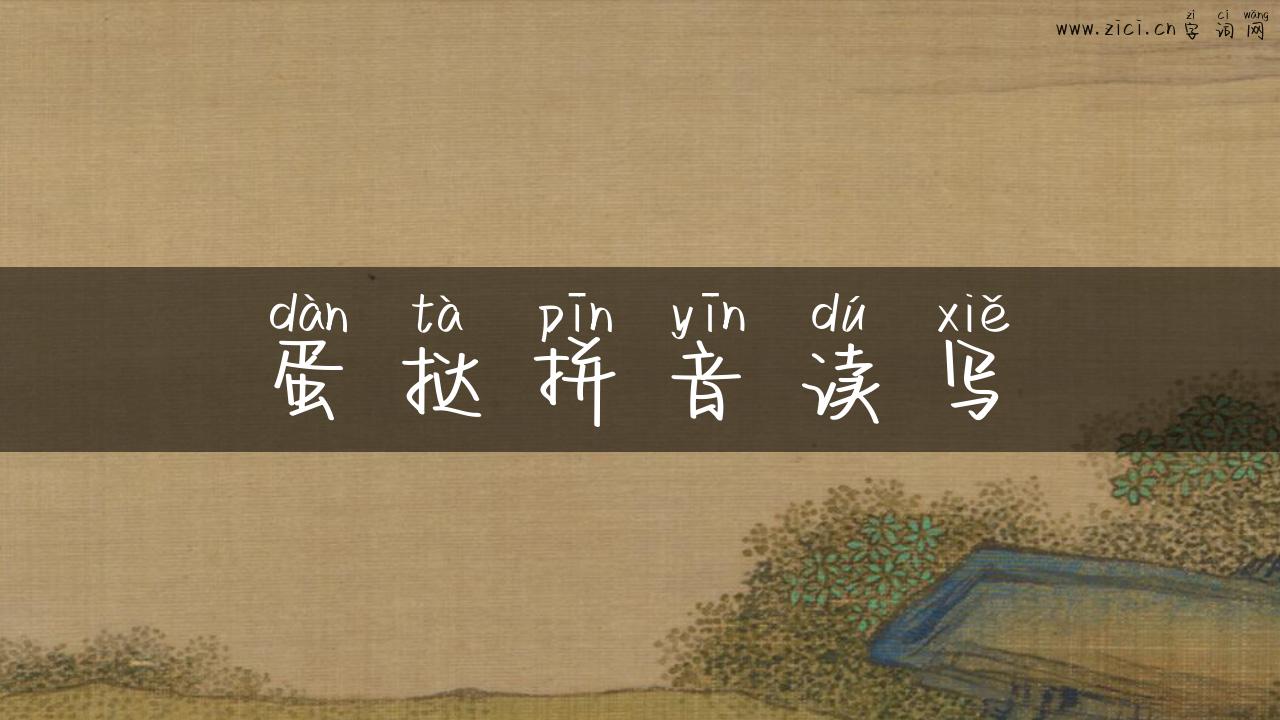 zì cí wǎng
www.zici.cn 字词网
dàn tà pīn yīn dú xiě
蛋挞拼音读写